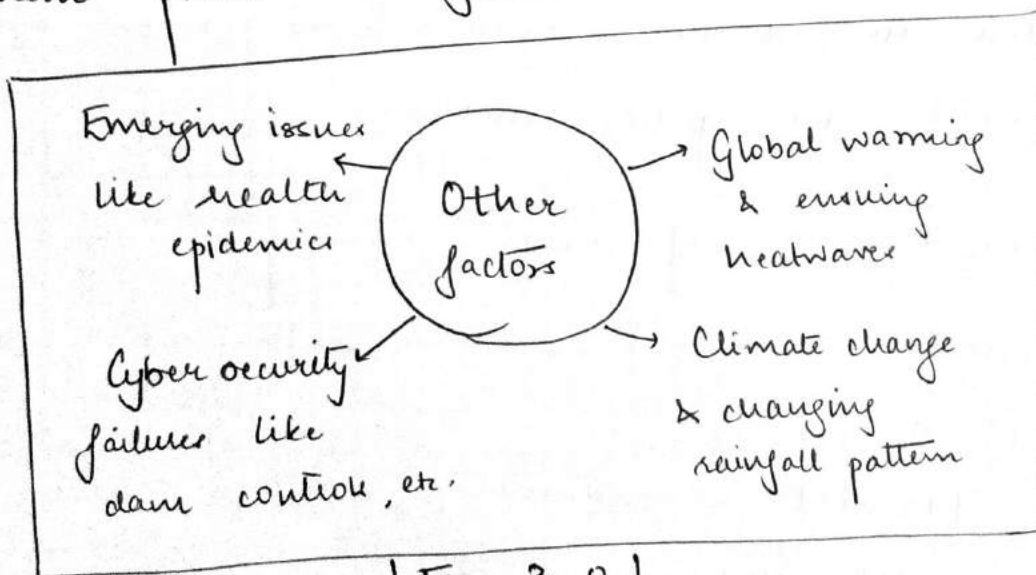 Other
factors
Emerging issues
like health
epidemics
Global warming
& ensuing
heatwaves
Cyber security
failures like
dam control, etc.
Climate change
& changing
rainfall pattern